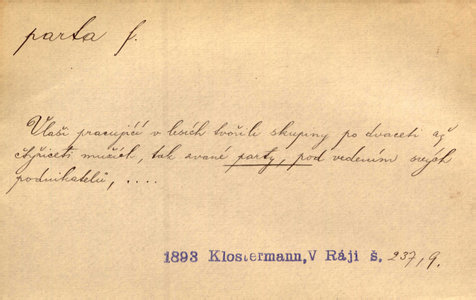 parta f.
Vlaši pracující v lesích tvořili skupiny po dvaceti až
čtyřiceti mužích, tak zvané party, pod vedením svých
podnikatelů, ....
1893 Klostermann, V Ráji š. 237, 9.